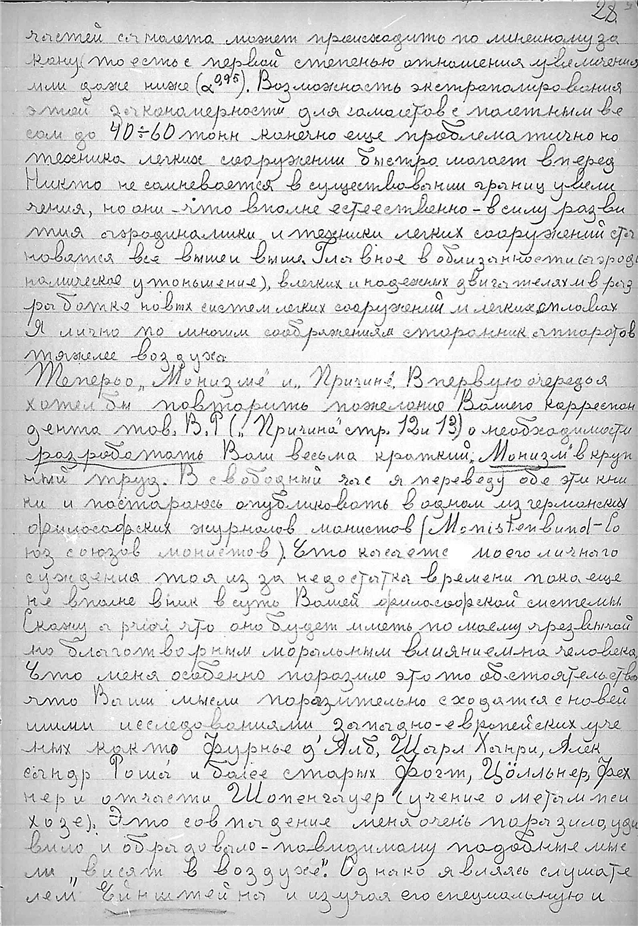 28
частей самолета может происходить по линейному за
кону (то есть с первой степенью отношения увеличения
или даже ниже (α⁰·⁹⁹⁵). Возможность экстраполирования
этой закономерности для самолетов с полетным ве
сом до 40÷60 тонн конечно еще проблематично но
техника легких сооружении быстро шагает вперед
Никто не сомневается в существовании границ увели
чения, но они – что вполне естественно – в силу разви
тия аэродинамики и техники легких сооружений ста
новятся все выше и выше. Главное в облизанности (аэроди
намическое утоньшение), в легких и надежных двигателях и в раз
работке новых систем легких сооружений и легких сплавах
Я лично по многим соображениям сторонник аппаратов
тяжелее воздуха.
Теперь о „Монизме" и „Причине". В первую очередь я
хотел бы повторить пожелание Вашего корреспон
дента тов. В.Р („Причина" стр. 12 и 13) о необходимости
разработать Ваш весьма краткий „Монизм" в круп
ный труд. В свободный час я переведу обе эти кни
ги и постараюсь опубликовать в одном из германских
философских журналов монистов (Monistenbund – Со
юз союзов монистов). Что касается моего личного
суждения то я из за недостатка времени пока еще
не вполне вник в суть Вашей философской системы.
Скажу a priori что она будет иметь по моему чрезвычай
но благотворным моральным влиянием на человека.
Что меня особенно поразило это то обстоятельство
что Ваши мысли поразительно сходятся с новей
шими исследованиями западно-европейских уче
ных как то Фурнье д'Алб, Шарл Хенри, Алек
сандр Роша и более старых Фогт, Цölльнер, Фех
нер и отчасти Шопенгауер (учение о метампси
хозе). Это совпадение меня очень поразило, уди
вило и обрадовало – повидимому подобные мыс
ли „висят в воздухе". Однако я являясь слушате
лем Ейнштейна и изучая его специальную и